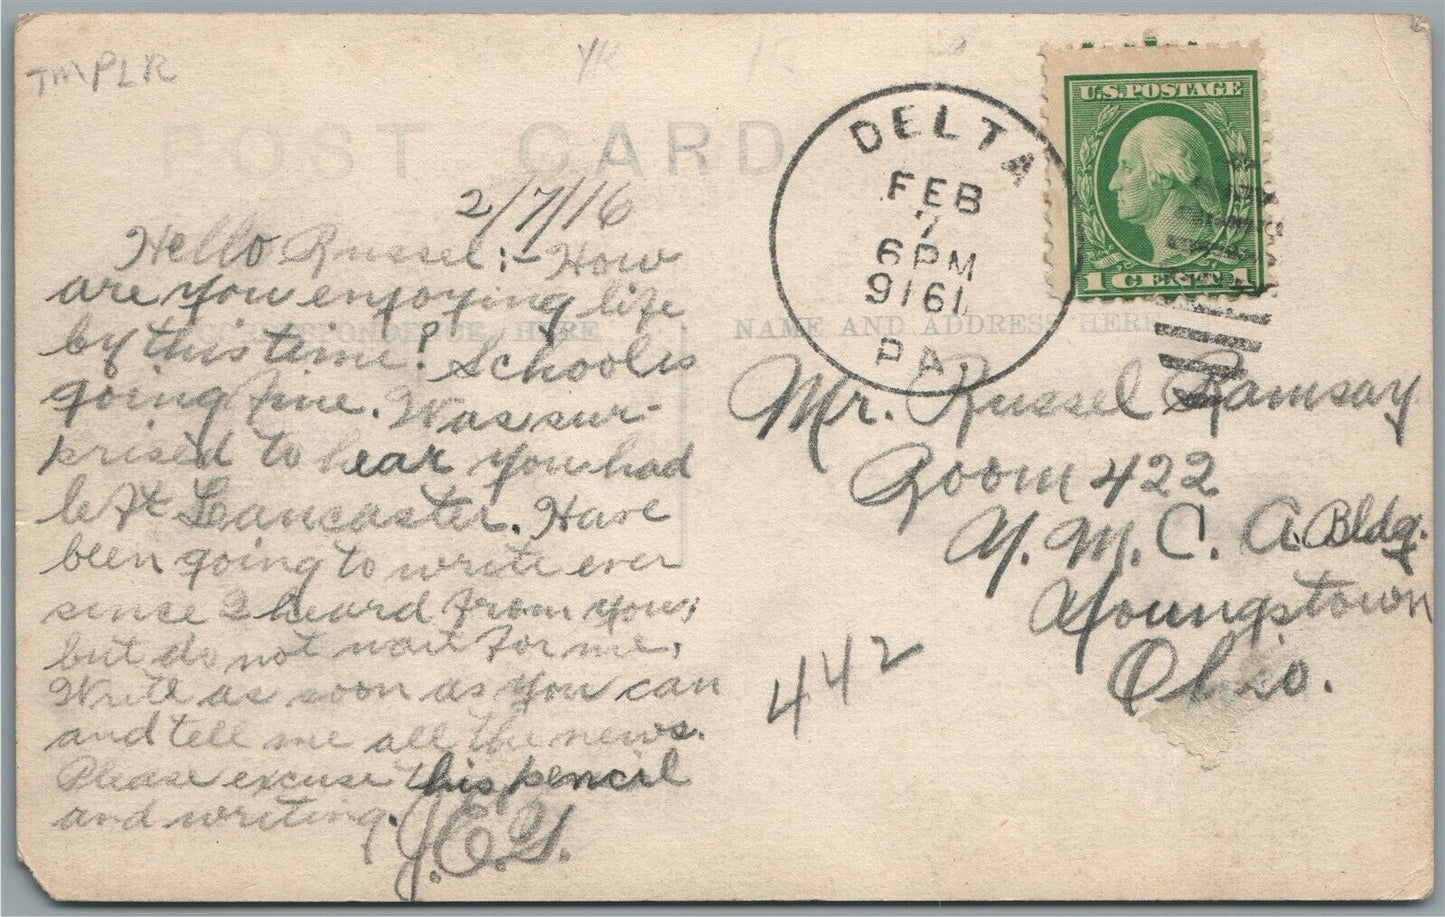 TMPLR
POST CARD
2/7/16
Hello Russel:- How
are you enjoying life
by this time? School is
going fine. Was sur-
prised to hear you had
left Lancaster. Have
been going to write ever
since I heard from you;
but do not wait for me.
Write as soon as you can
and tell me all the news.
Please excuse this pencil
and writing.
J.E.Y.
CORRESPONDENCE HERE
NAME AND ADDRESS HERE
DELTA
FEB
7
6 PM
9161
PA
U.S. POSTAGE
1 CENT 1
Mr. Russel Ramsay
Room 422
Y. M. C. A. Bldg.
Youngstown
Ohio.
442